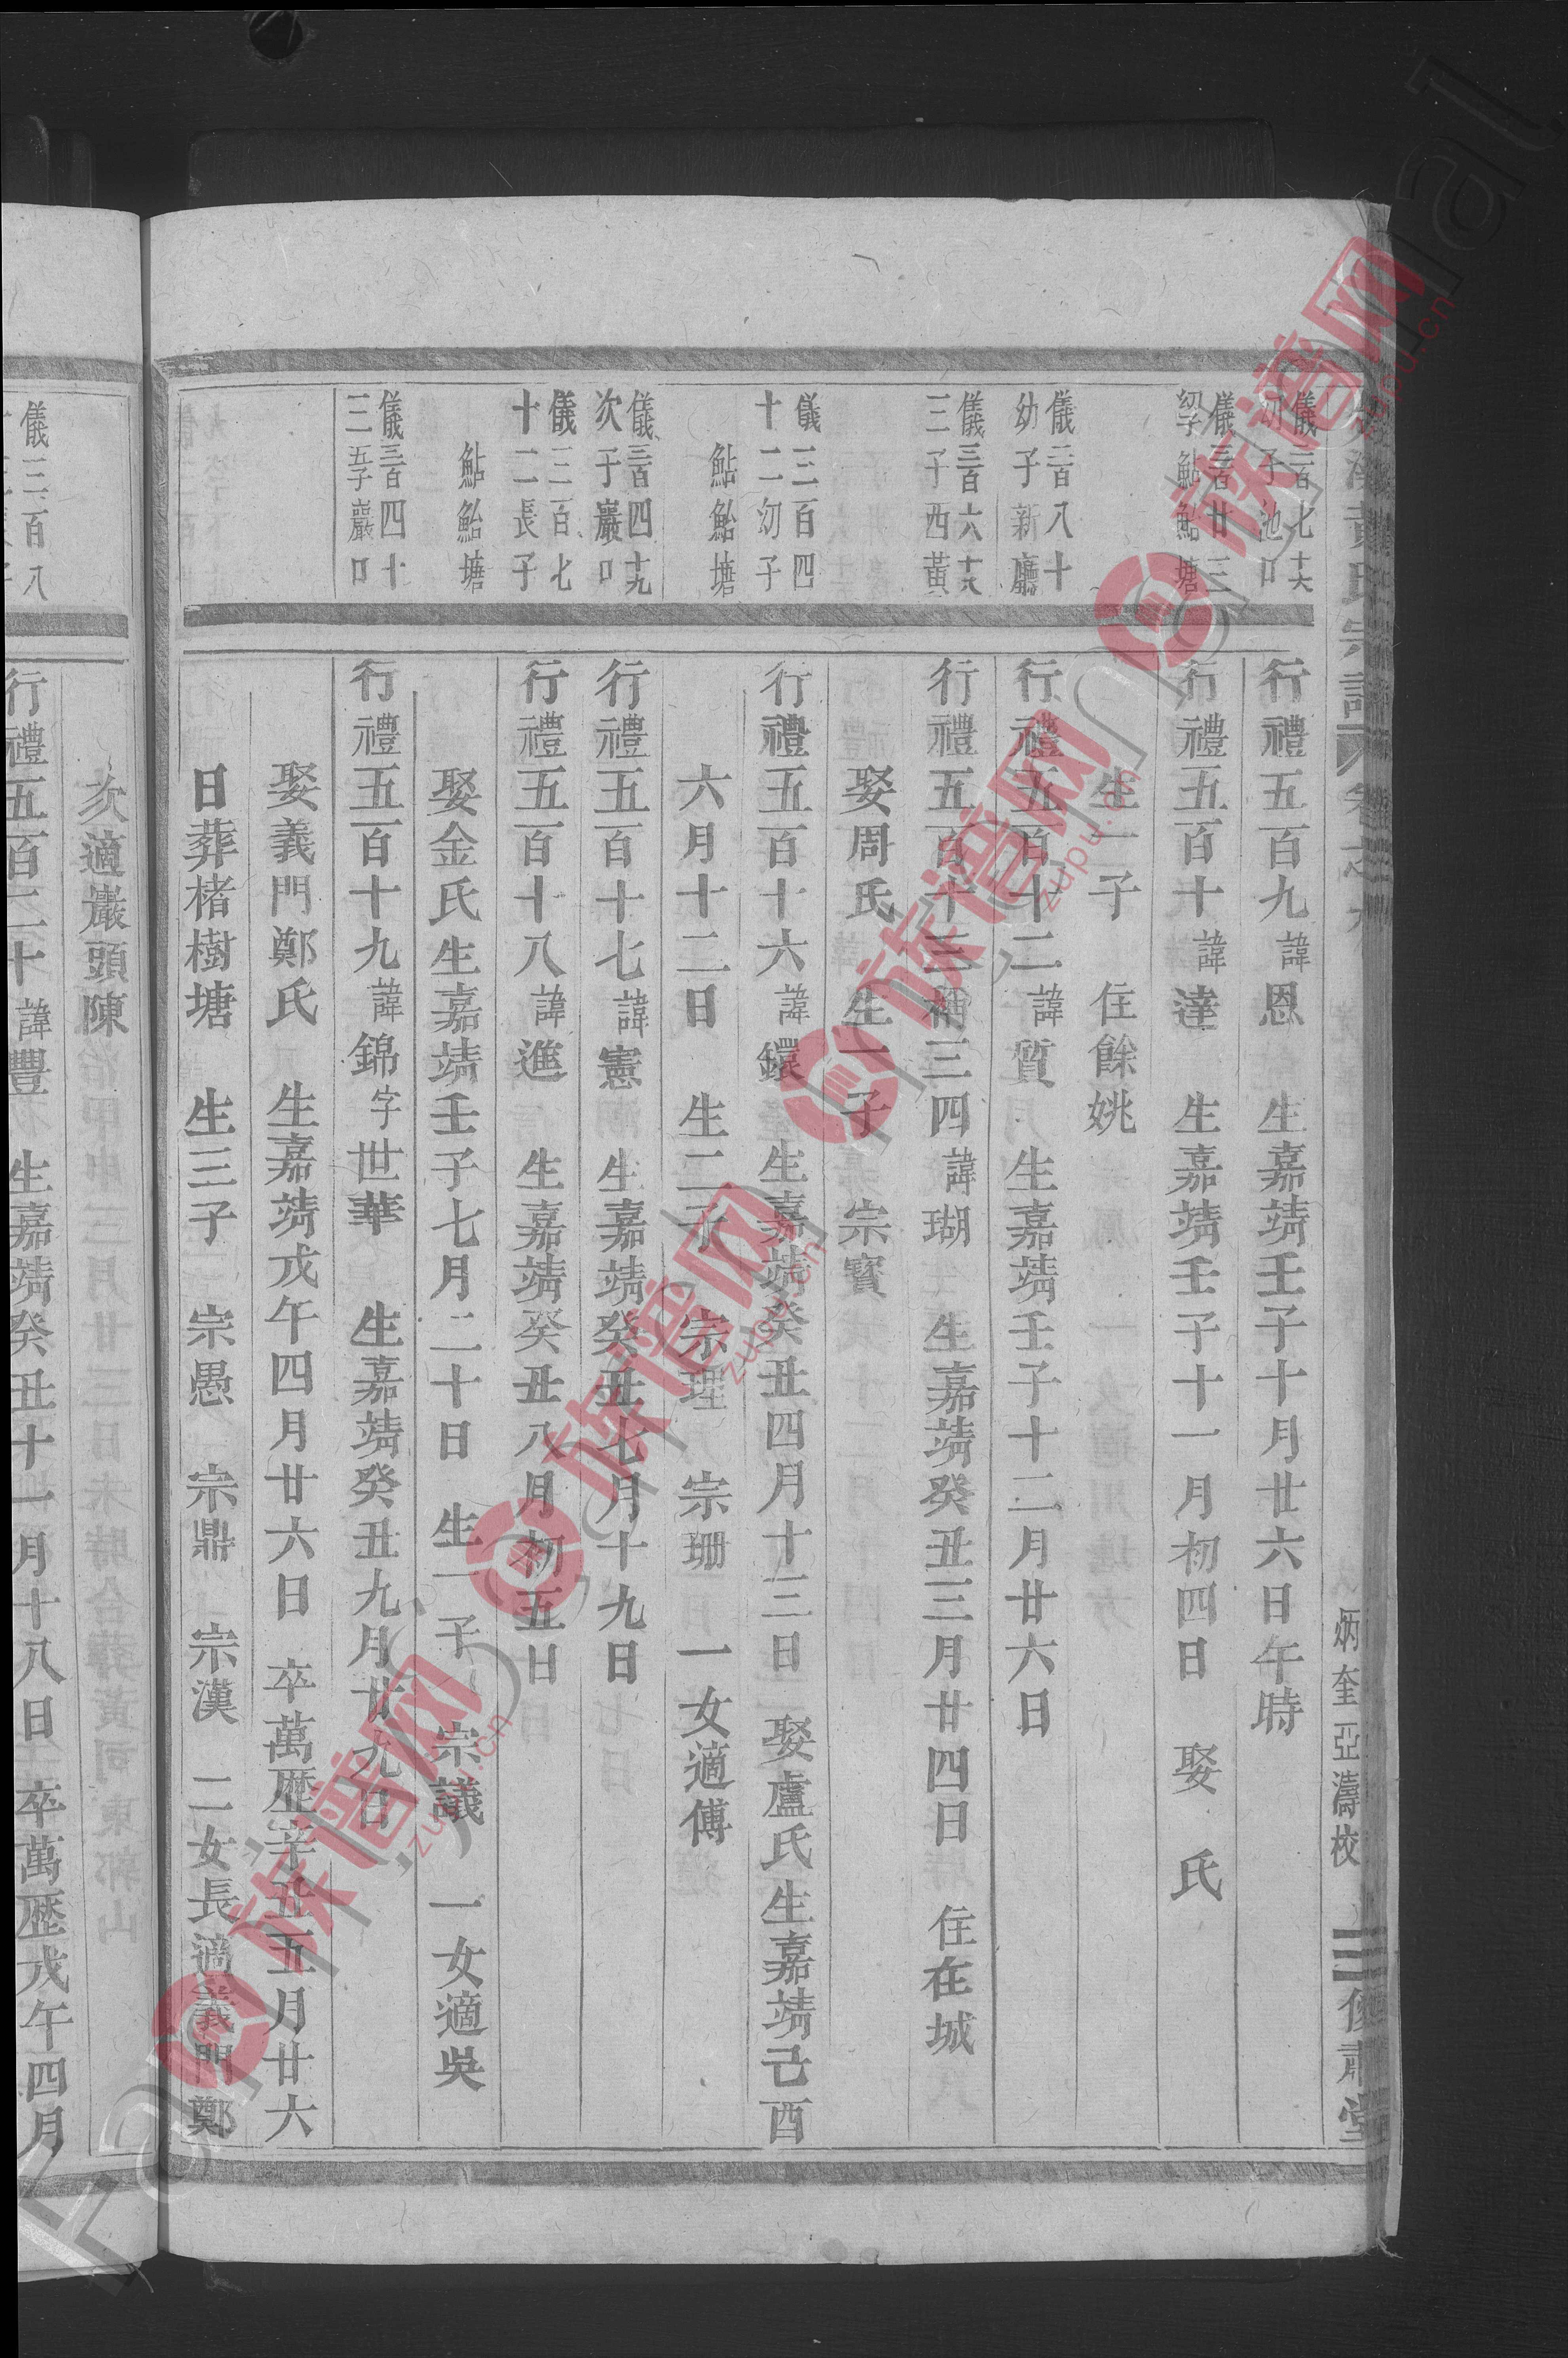 黃氏宗譜 卷之九 炳奎亞濤校 三 俊肅堂
儀三百七十六
幼子池口
行禮五百九諱恩 生嘉靖壬子十月廿六日午時
儀三百廿三
幼子鮎鮐塘
行禮五百十諱達 生嘉靖壬子十一月初四日 娶 氏
生一子 住餘姚
儀三百八十
幼子新廳
行禮五百十二諱質 生嘉靖壬子十二月廿六日
儀三百六十八
三子西黃
行禮五百十三 三四諱瑚 生嘉靖癸丑三月廿四日 住在城
娶周氏 生一子 宗寶
儀三百四
十二幼子
鮎鮐塘
行禮五百十六諱鐶 生嘉靖癸丑四月十三日 娶盧氏生嘉靖己酉
六月十二日 生二子 宗理 宗珊 一女適傅
儀三百四十九
次子巖口
行禮五百十七諱憲 生嘉靖癸丑七月十九日
儀三百七
十二長子
鮎鮐塘
行禮五百十八諱進 生嘉靖癸丑八月初五日
娶金氏生嘉靖壬子七月二十日 生一子 宗議 一女適吳
儀三百四十
三五子巖口
行禮五百十九諱錦字世華 生嘉靖癸丑九月廿九日
娶義門鄭氏 生嘉靖戊午四月廿六日 卒萬歷辛丑五月廿六
日葬楮樹塘 生三子 宗愚 宗鼎 宗漢 二女長適義門鄭
次適巖頭陳
儀三百八
行禮五百二十諱豐 生嘉靖癸丑十一月十八日 卒萬歷戊午四月
族谱网
zupu.cn